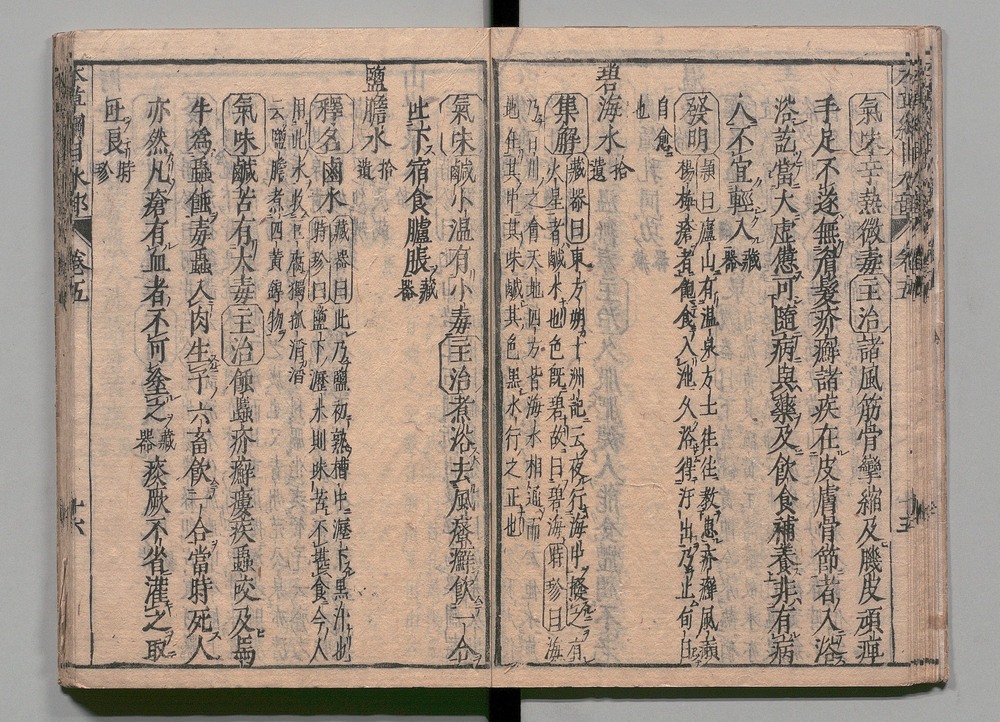 氣味辛熱微毒主治諸風筋骨攣縮及肌皮頑痺
手足不遂無眉髮疥癬諸疾在皮膚骨節者入浴
浴訖當大虛憊可隨病與藥及飲食補養非有病
人不宜輕入藏器
發明頴曰廬山有溫泉方士往往教患疥癬風癩
楊梅瘡者飽食入池久浴得汗出乃止旬日
自愈
也
碧海水拾遺
集解藏器曰東方朔十洲記云夜行海中撥之有
火星者鹹水也色既碧故曰碧海時珍曰海
乃百川之會天地四方皆海水相通而
地在其中其味鹹其色黑水行之正也
氣味鹹小溫有小毒主治煮浴去風瘙癬飲一合
吐下宿食臚脹藏器
鹽膽水拾遺
釋名鹵水藏器曰此乃鹽初熟槽中瀝下黑汁也
時珍曰鹽下瀝水則味苦不堪食今人
用此水收豆腐獨孤滔
云鹽膽煮四黃銲物
氣味鹹苦有大毒主治䘌蝕疥癬瘻疾蟲咬及馬
牛為蟲蝕毒蟲入肉生子六畜飲一合當時死人
亦然凡瘡有血者不可塗之藏器痰厥不省灌之取
吐良時珍
本草綱目水部
卷五
十六
十五